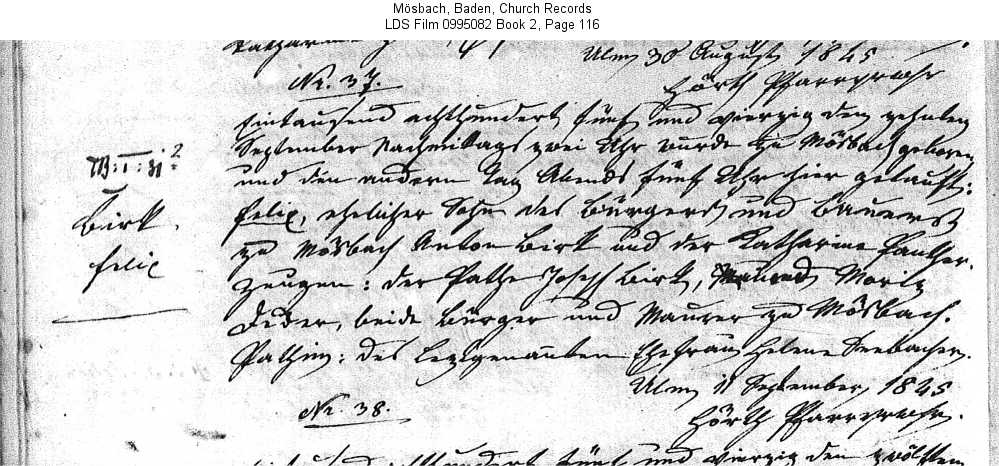 Mösbach, Baden, Church Records
LDS Film 0995082 Book 2, Page 116
Ulm 30 August 1845
Hörth Pfarrverweser
No. 37.
Eintausend achthundert fünf und vierzig den zehnten
September Nachmittags zwei Uhr wurde zu Mösbach geboren
und den andern Tag Abends fünf Uhr hier getauft:
Felix, ehelicher Sohn des Bürgers und Bauers
zu Mösbach Anton Birk und der Katharine Panther.
Zeugen: der Pathe Joseph Birk, Moritz
beide Bürger und Maurer zu Mösbach.
Pathin: des Letztgenannten Ehefrau Helene Seebacher.
Ulm 11 September, 1845
Hörth Pfarrverweser.
Birk
Felix
No. 38.
fünf und vierzig den zwölften